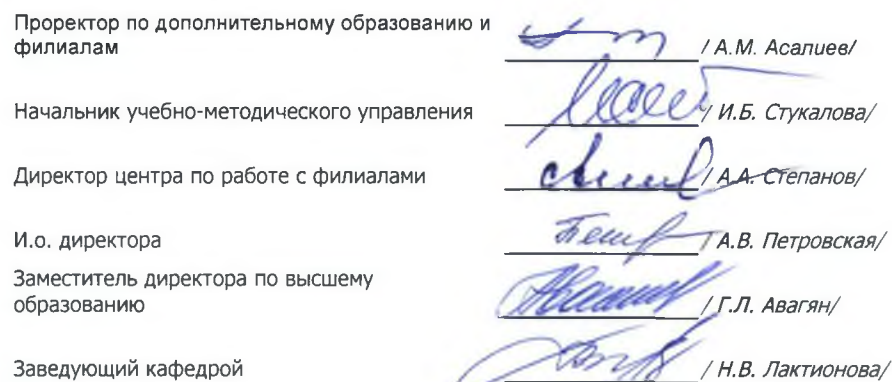 Проректор по дополнительному образованию и
филиалам / А.М. Асалиев/
Начальник учебно-методического управления / И.Б. Стукалова/
Директор центра по работе с филиалами / А.А. Степанов/
И.о. директора / А.В. Петровская/
Заместитель директора по высшему
образованию / Г.Л. Авагян/
Заведующий кафедрой / Н.В. Лактионова/